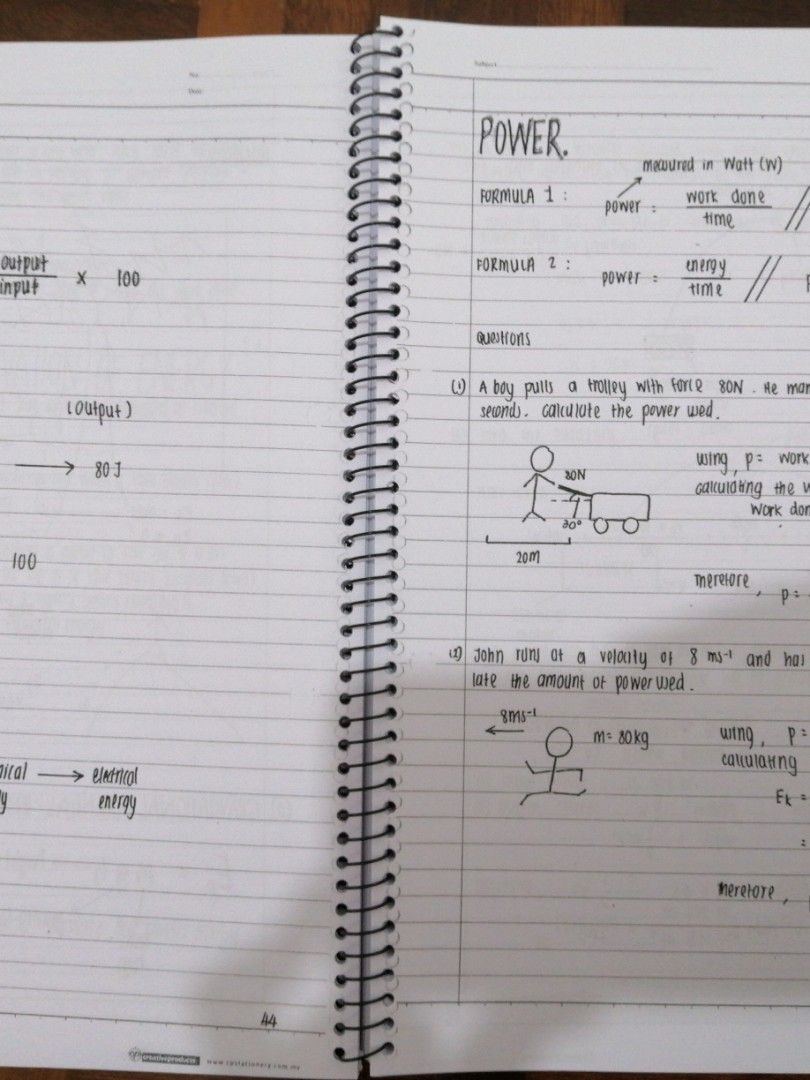 No:
Date:
output
input × 100
(output)
→ 80 J
100
ical → electrical
y energy
44
creativeproducts www.cpstationery.com.my
Subject
POWER.
measured in Watt (W)
FORMULA 1 : power = work done / time //
FORMULA 2 : power = energy / time //
questions
(1) A boy pulls a trolley with force 80N. He man
seconds. calculate the power used.
80N
30°
20m
using, p = work
calculating the w
Work don
Therefore, p =
(2) John runs at a velocity of 8 ms-¹ and has
late the amount of power used.
8ms-¹
m = 80kg
using, p =
calculating
Ek =
=
therefore,